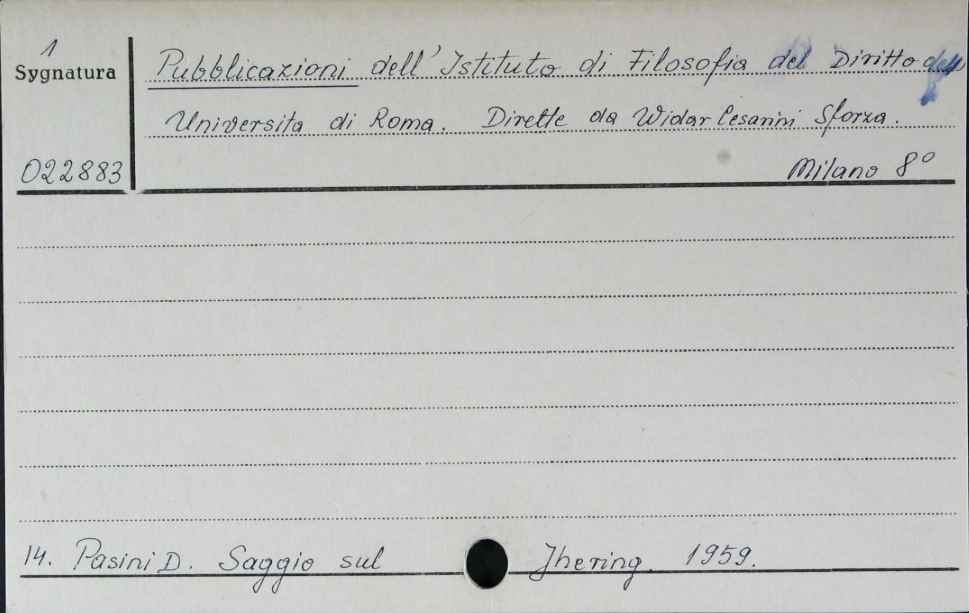 1
Sygnatura
022883
Pubblicazioni dell'Istituto di Filosofia del Diritto dell'
Universita di Roma. Dirette da Widar Cesarini Sforza.
Milano 8°
14. Pasini D. Saggio sul Jhering. 1959.